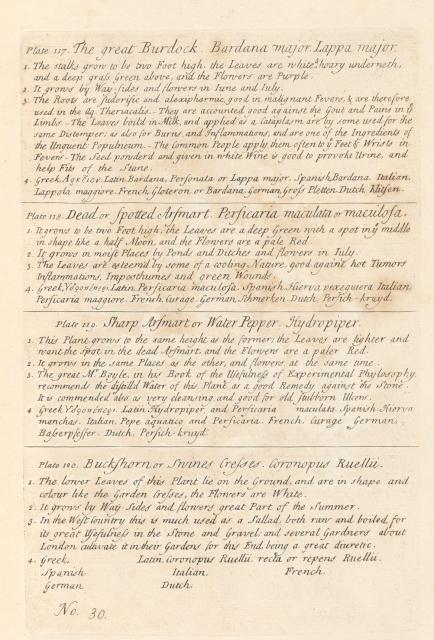 Plate 117. The great Burdock. Bardana major. Lappa major.
1. The stalks grow to be two Foot high, the Leaves are white & hoary underneth,
and a deep grass Green above, and the Flowers are Purple.
2. It grows by Way-sides and flowers in Iune and Iuly.
3. The Roots are sudorific and alexipharmic, good in malignant Fevers, & are therefore
used in the Aq. Theriacalis. They are accounted good against the Gout and Pains in ye
Limbs. The Leaves boild in Milk, and applied as a Cataplasm are by some used for the
same Distemper; as also for Burns, and Inflammations, and are one of the Ingredients of
the Unguent Populneum. The Common People apply them often to ye Feet & Wrists in
Fevers. The Seed powderd and given in white Wine is good to provoke Urine, and
help Fits of the Stone.
4. Greek, Latin. Personata or Lappa major. Spanish, Bardana. Italian,
Lappola maggiore. French, Gloteron or Bardana. German, Gross Pletten. Dutch,
Plate 118. Dead or Spotted Arsmart. Persicaria maculata or maculosa.
1. It grows to be two Foot high, the Leaves are a deep Green with a spot in ye middle
in shape like a half Moon, and the Flowers are a pale Red.
2. It grows in moist Places by Ponds and Ditches and flowers in Iuly.
3. The Leaves are esteem'd by some of a cooling Nature, good against hot Tumors
Inflammations, Imposthumes and green Wounds.
4. Greek, Latin, Persicaria maculosa. Spanish, Hierva pexeguera Italian
Persicaria maggiore. French, Curage. German, Dutch, Persich-kruyd.
Plate 119. Sharp Arsmart or Water Pepper. Hydropiper.
1. This Plant grows to the same height as the former; the Leaves are lighter and
want the Spot in the dead Arsmart, and the Flowers are a paler Red.
2. It grows in the same Places as the other, and flowers at the same time.
3. The great Mr. Boyle, in his Book of the Usefulness of Experimental Phylosophy,
recommends the distilld Water of this Plant as a good Remedy against the Stone.
It is commended also as very cleansing, and good for old stubborn Ulcers.
4. Greek, Latin, Hydropiper, and Persicaria maculata. Spanish, Hierva
manchas. Italian, Pepe aquatico and Persicaria. French, Curage German,
Dutch, Persich-kruyd.
Plate 120. Buckshorn or Swines Cresses. Coronopus Ruellii.
1. The lower Leaves of this Plant lie on the Ground, and are in shape and
colour like the Garden Cresses, the Flowers are White.
2. It grows by Way-Sides and flowers great Part of the Summer.
3. In the West Country this is much used as a Sallad, both raw and boiled, for
its great Usefulness in the Stone and Gravel; and several Gardners about
London cultivate it in their Gardens for this End, being a great diuretic.
4. Greek, Latin, Coronopus Ruellii, recta or repens Ruellii.
Spanish, Italian, French,
German Dutch.
No. 30.